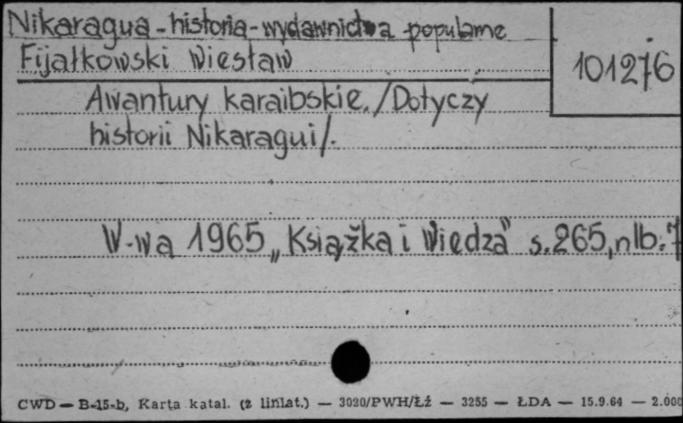 Nikaragua - historia - wydawnictwa popularne
Fijałkowski Wiesław
101276
Awantury karaibskie. /Dotyczy
historii Nikaragui/.
W-wa 1965 „Książka i Wiedza" s. 265, nlb. 7
CWD — B-15-b, Karta katal. (z liniat.) — 3020/PWH/Łź — 3255 — ŁDA — 15.9.64 — 2.000